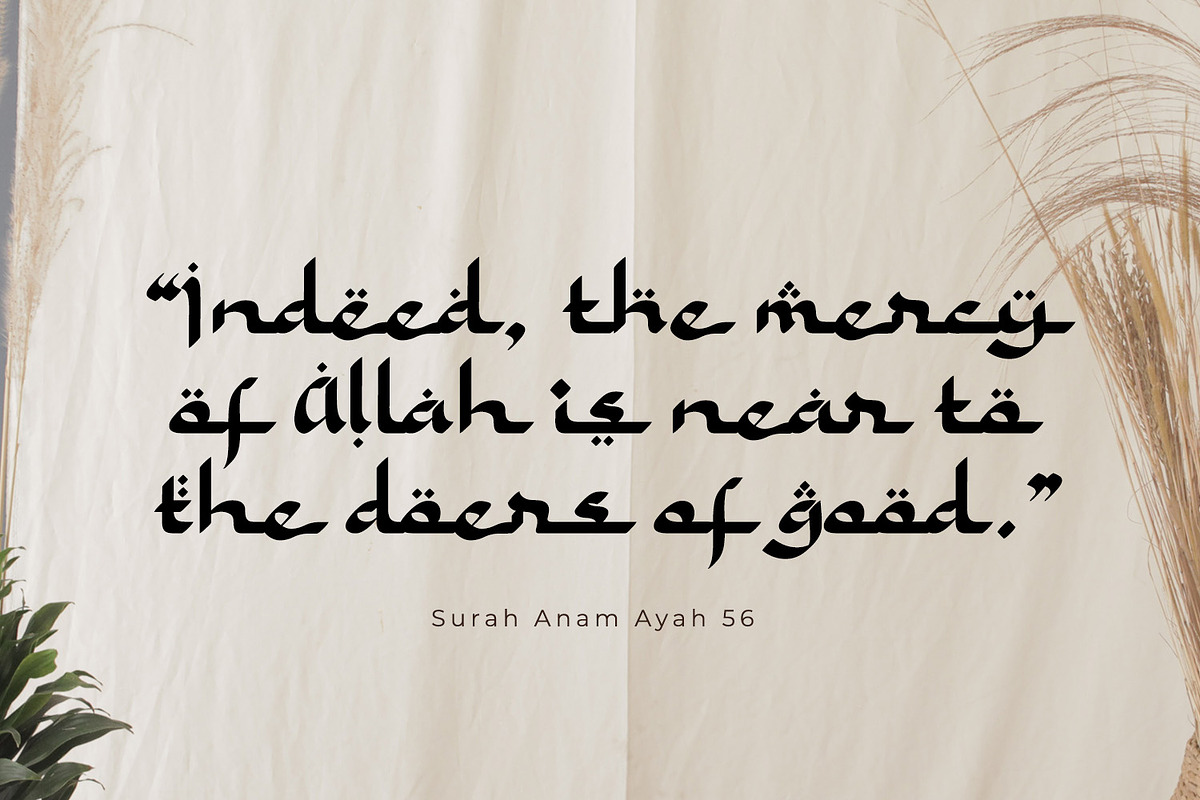 “Indeed, the mercy
of Allah is near to
the doers of good.”
Surah Anam Ayah 56